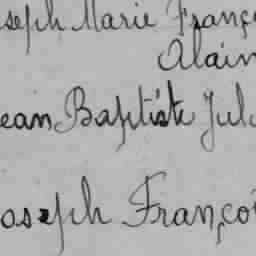 seph Marie Franç
Alain
ean Baptiste Jul
oseph Françoi